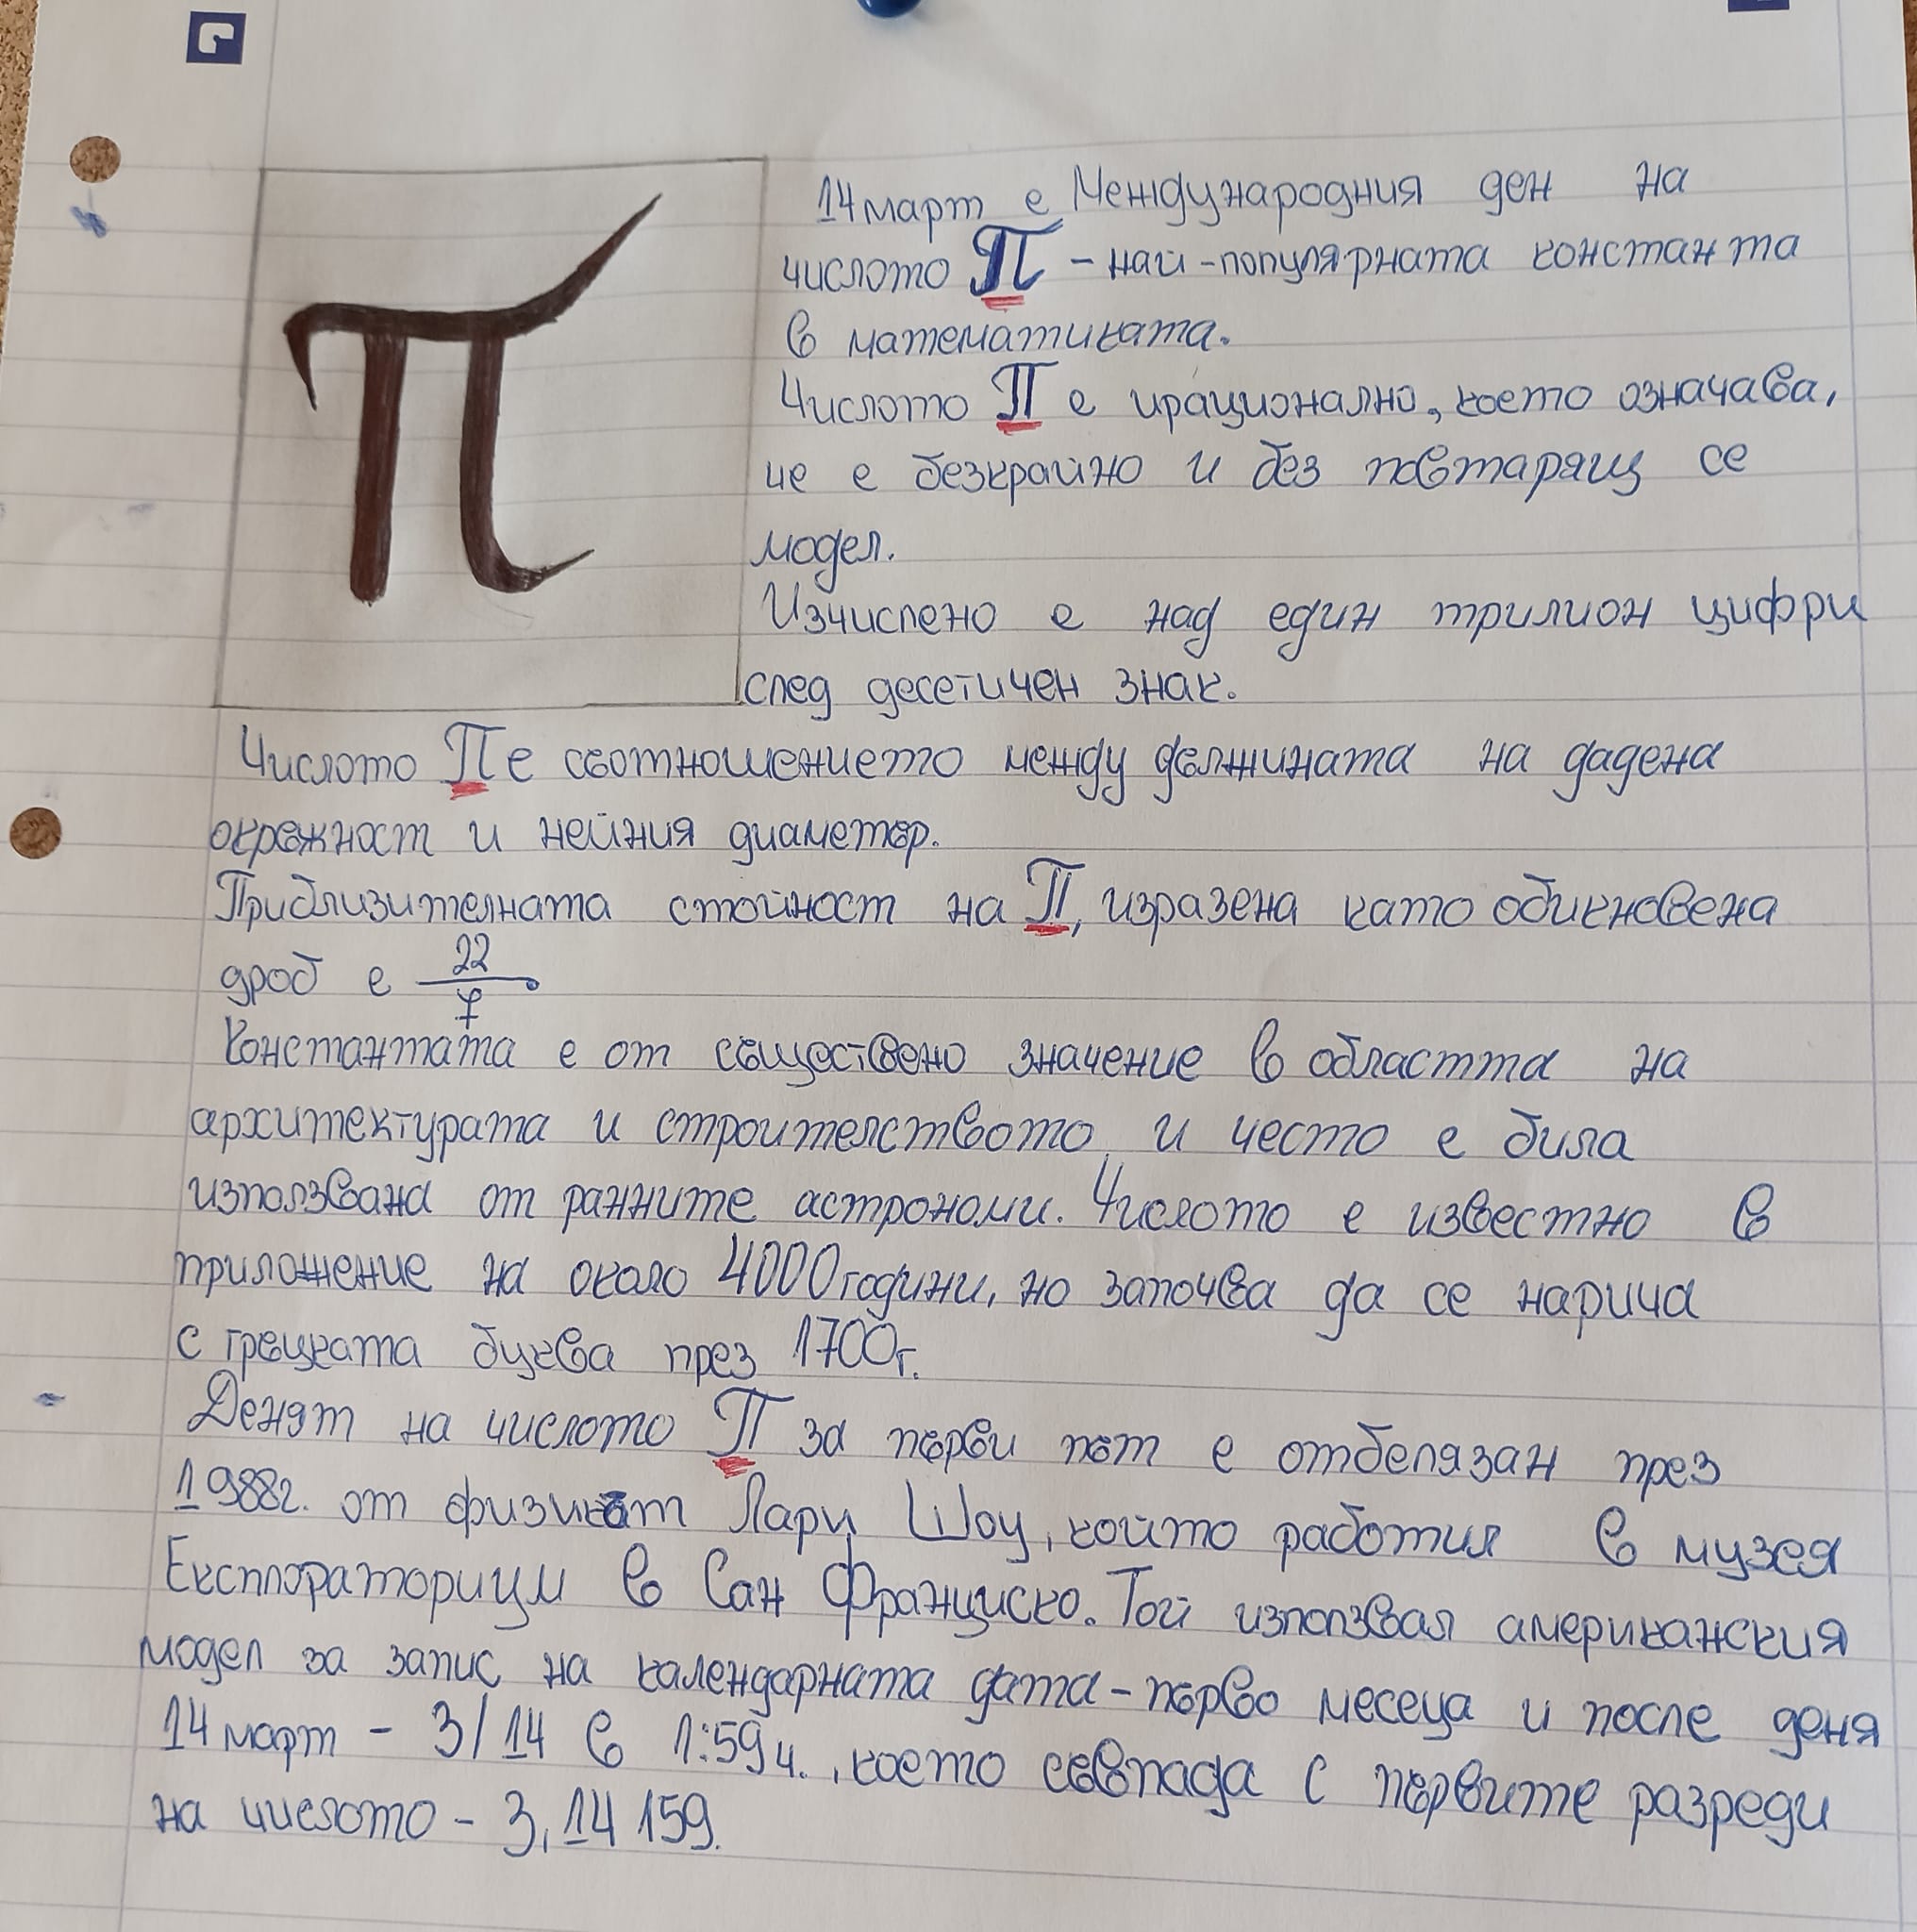 π
14 март е Международния ден на
числото П - най-популярната константа
в математиката.
Числото П е ирационално, което означава,
че е безкрайно и без повтарящ се
модел.
Изчислено е над един трилион цифри
след десетичен знак.
Числото П е съотношението между дължината на дадена
окръжност и нейния диаметър.
Приблизителната стойност на П, изразена като обикновена
дроб е 22/7
Константата е от съществено значение в областта на
архитектурата и строителството и често е била
използвана от ранните астрономи. Числото е известно в
приложение на около 4000 години, но започва да се нарича
с гръцката буква през 1700г.
Денят на числото П за първи път е отбелязан през
1988г. от физикът Лари Шоу, който работил в музея
Експлораториум в Сан Франциско. Той използвал американския
модел за запис на календарната дата - първо месеца и после деня
14 март - 3/14 в 1:59ч., което съвпада с първите разреди
на числото - 3,14 159.